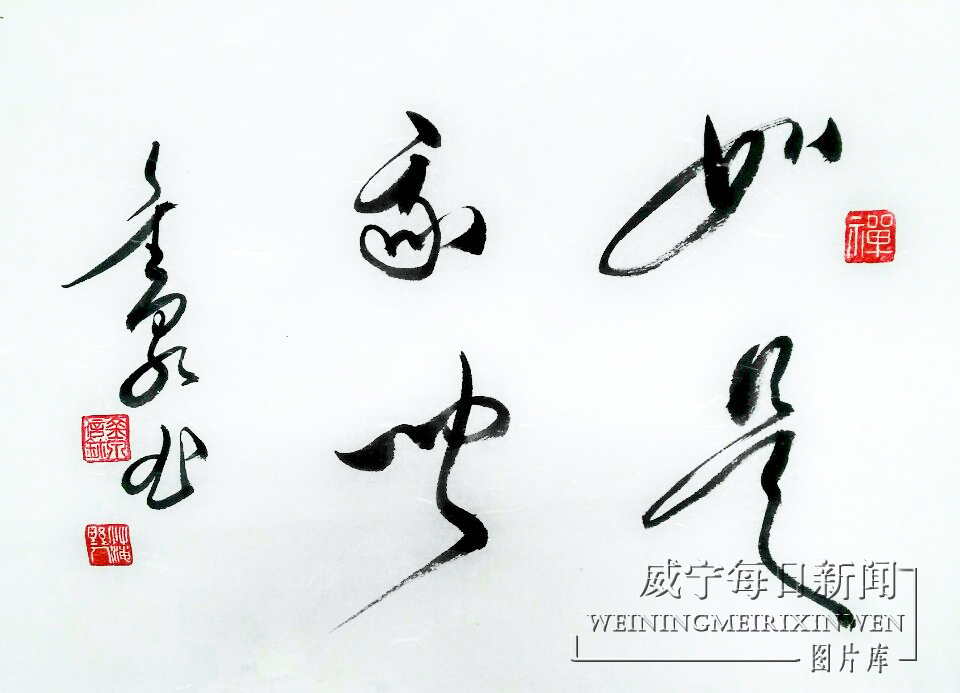 禪
如是
我聞
金泉书
威宁每日新闻
WEININGMEIRIXINWEN
图片库